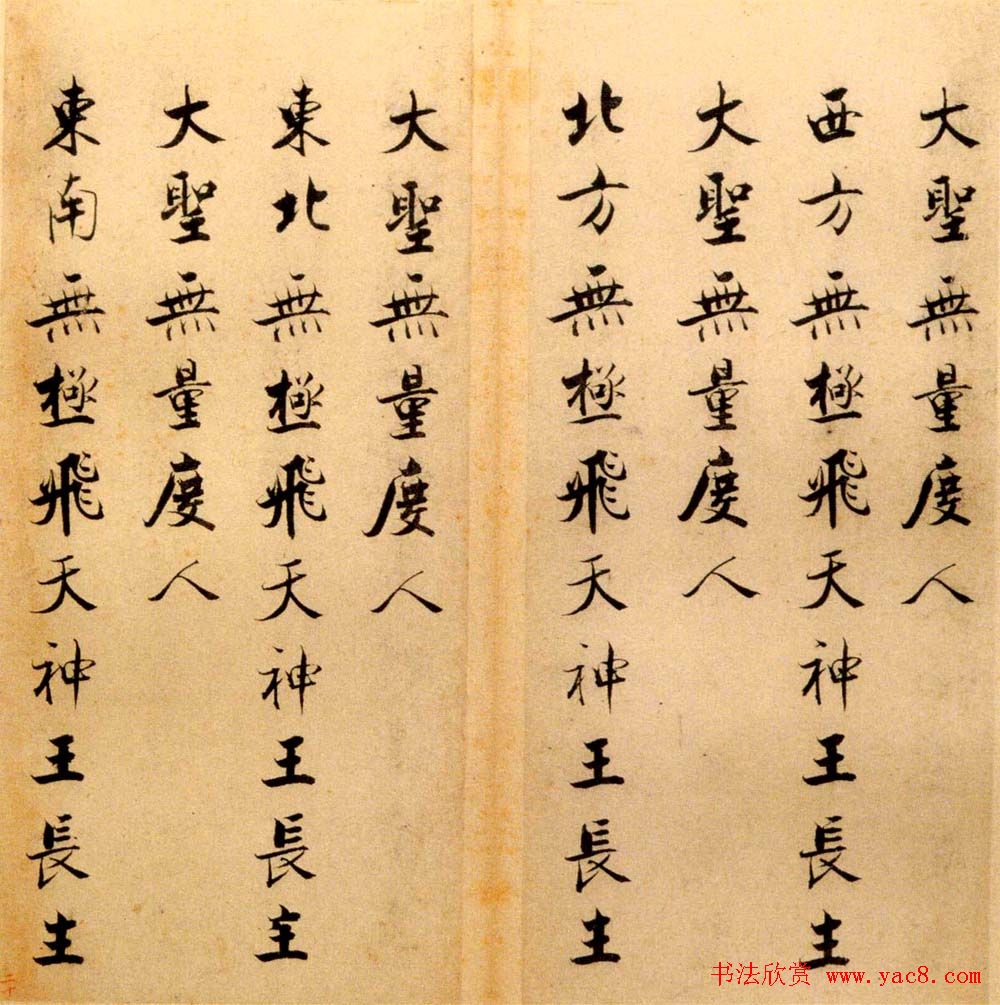 大聖無量度人
西方無極飛天神王長生
大聖無量度人
北方無極飛天神王長生
大聖無量度人
東北無極飛天神王長生
大聖無量度人
東南無極飛天神王長生
二十
书法欣赏 www.yac8.com